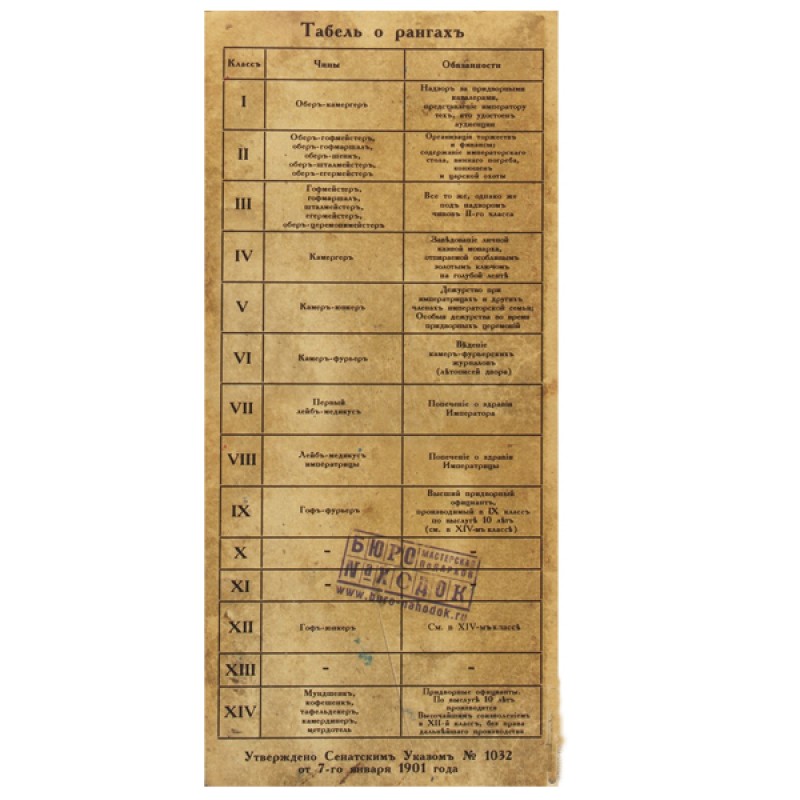 Табель о рангахъ
Классъ Чины Обязанности
I
Оберъ-камергеръ
Надзоръ за придворными
кавалерами,
представление императору
тех, кто удостоен
аудиенции
II
Оберъ-гофмейстеръ,
оберъ-гофмаршалъ,
оберъ-шенкъ,
оберъ-шталмейстеръ
оберъ-егермейстеръ
Организация торжеств
и финансы:
содержание императорского
стола, винного погреба,
конюшен
и царской охоты
III
Гофмейстеръ,
гофмаршалъ,
шталмейстеръ,
егермейстеръ,
оберъ-церемониймейстеръ
Все то же, однако же
подъ надзоромъ
чиновъ II-го класса
IV
Камергеръ
Завѣдование личной
казной монарха,
отпираемой особливым
золотымъ ключомъ
на голубой лентѣ
V
Камеръ-юнкеръ
Дежурство при
императрицахъ и другихъ
членахъ императорской семьи;
Особыя дежурства во время
придворныхъ церемоній
VI
Камеръ-фурьеръ
Вѣдение
камеръ-фурьерскихъ
журналовъ
(лѣтописей двора)
VII
Первый
лейбъ-медикусъ
Попеченіе о здравіи
Императора
VIII
Лейбъ-медикусъ
императрицы
Попеченіе о здравіи
Императрицы
IX
Гофъ-фурьеръ
Высший придворный
официантъ,
производимый в IX классъ
по выслугѣ 10 лѣтъ
(см. в XIV-мъ классѣ)
X - -
XI - -
БЮРО
НаХОДОК
МАСТЕРСКАЯ
ПОДАРКОВ
www.buro-nahodok.ru
XII
Гофъ-юнкеръ
См. в XIV-мъ классѣ
XIII - -
XIV
Мундшенкъ,
кофешенкъ,
тафельдекеръ,
камердинеръ,
метрдотель
Придворные официанты.
По выслугѣ 10 лѣтъ
производятся
Высочайшимъ соизволениемъ
в XII-й классъ, без права
дальнѣйшего производства
Утверждено Сенатскимъ Указомъ № 1032
от 7-го января 1901 года